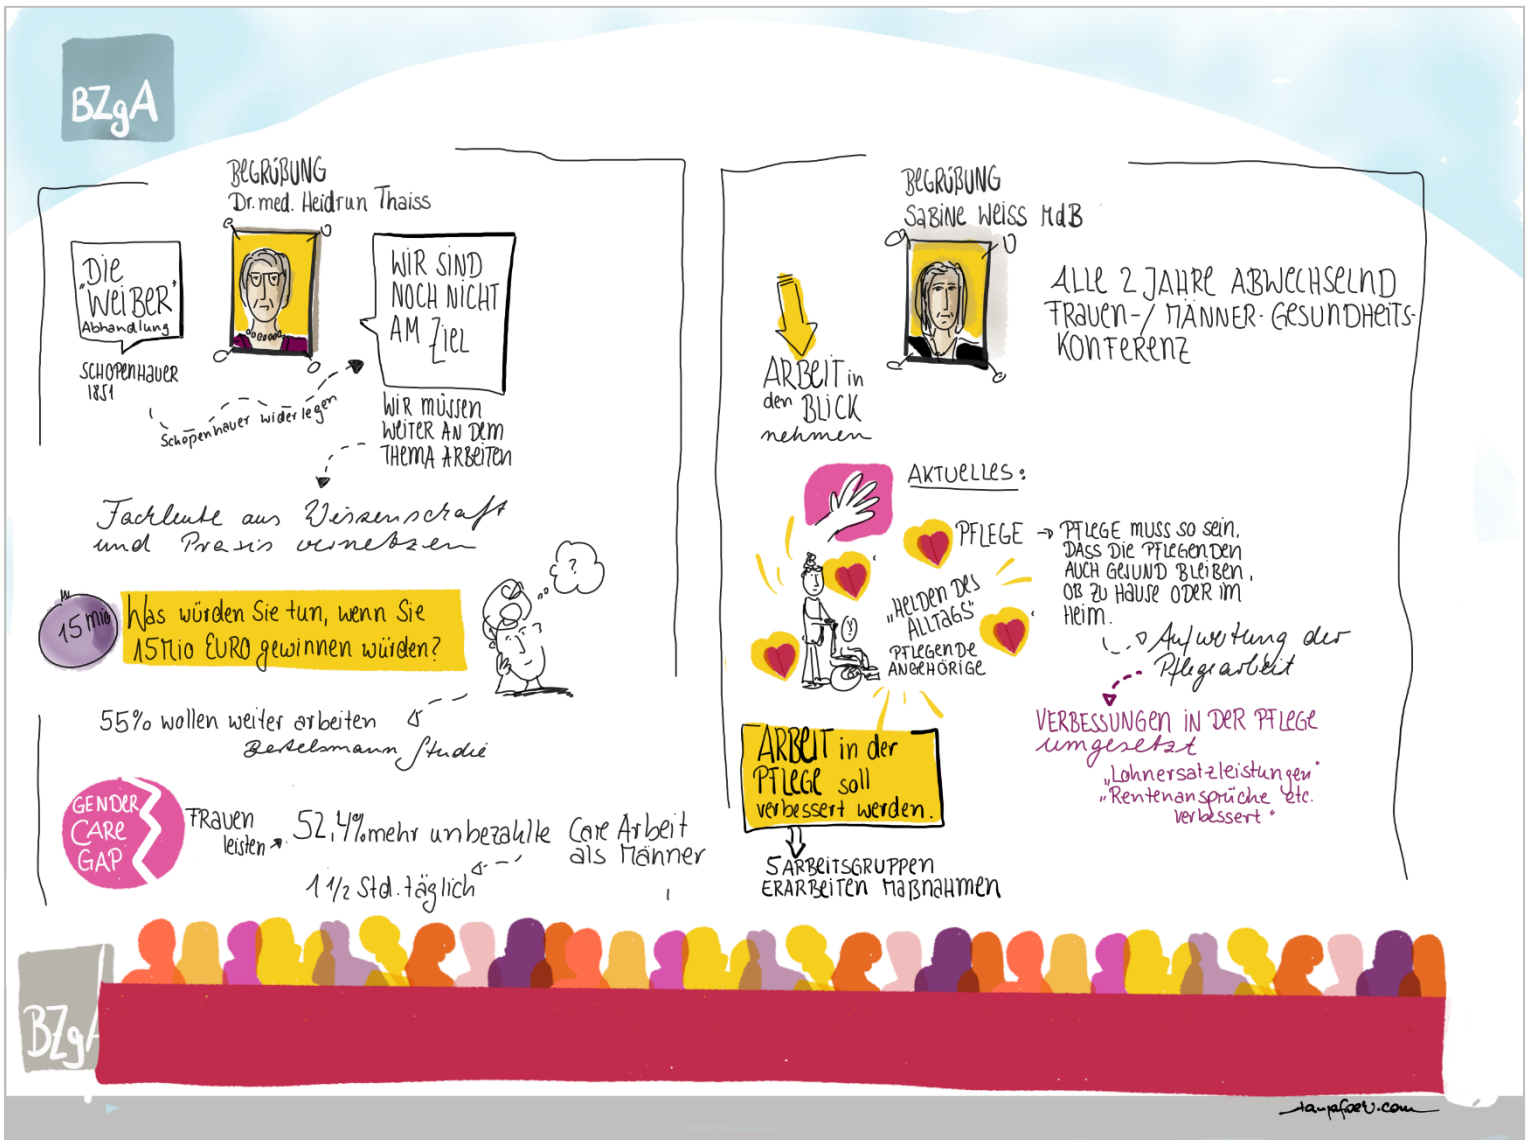 BZgA
BEGRÜßUNG
Dr. med. Heidrun Thaiss
DIE
"WEIBER"
Abhandlung
SCHOPENHAUER
1851
Schopenhauer widerlegen
WIR SIND
NOCH NICHT
AM ZIEL
WIR MÜSSEN
WEITER AN DEM
THEMA ARBEITEN
Fachleute aus Wissenschaft
und Praxis vernetzen
?
15 mio
Was würden Sie tun, wenn Sie
15 Mio EURO gewinnen würden?
55% wollen weiter arbeiten
Bertelsmann Studie
GENDER
CARE
GAP
FRAUEN
leisten
52,4% mehr unbezahlte Care Arbeit
als Männer
1 1/2 Std. täglich
BEGRÜßUNG
SABINE WEISS MdB
ARBEIT in
den BLICK
nehmen
ALLE 2 JAHRE ABWECHSELND
FRAUEN-/MÄNNER-GESUNDHEITS-
KONFERENZ
AKTUELLES:
PFLEGE
PFLEGE MUSS SO SEIN,
DASS DIE PFLEGENDEN
AUCH GESUND BLEIBEN,
OB ZU HAUSE ODER IM
HEIM.
"HELDEN DES
ALLTAGS"
PFLEGENDE
ANGEHÖRIGE
Aufwertung der
Pflegearbeit
VERBESSUNGEN IN DER PFLEGE
umgesetzt
"Lohnersatzleistungen"
"Rentenansprüche etc.
verbessert"
ARBEIT in der
PFLEGE soll
verbessert werden.
5 ARBEITSGRUPPEN
ERARBEITEN MAßNAHMEN
BZgA